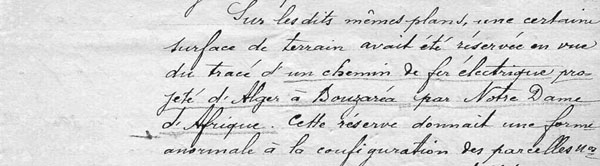 Sur les dits mêmes plans, une certaine
surface de terrain avait été réservée en vue
du tracé d'un chemin de fer électrique pro-
jeté d'Alger à Bouzaréa par Notre Dame
d'Afrique. Cette réserve donnait une forme
anormale à la configuration des parcelles nos